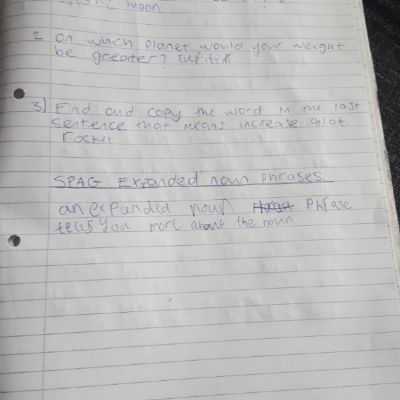 moon
2 on which planet would your weight
be greater? Jupiter
3) Find and copy the word in the last
sentence that means increase alot
rockit
SPAG: Expanded noun phrases
an expanded noun phrase
tells you more about the noun